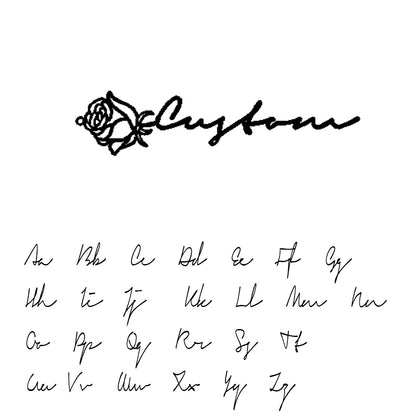 Custom
Aa Bb Cc Dd Ee Ff Gg
Hh Ii Jj Kk Ll Mm Nn
Oo Pp Qq Rr Ss Tt
Uu Vv Ww Xx Yy Zz